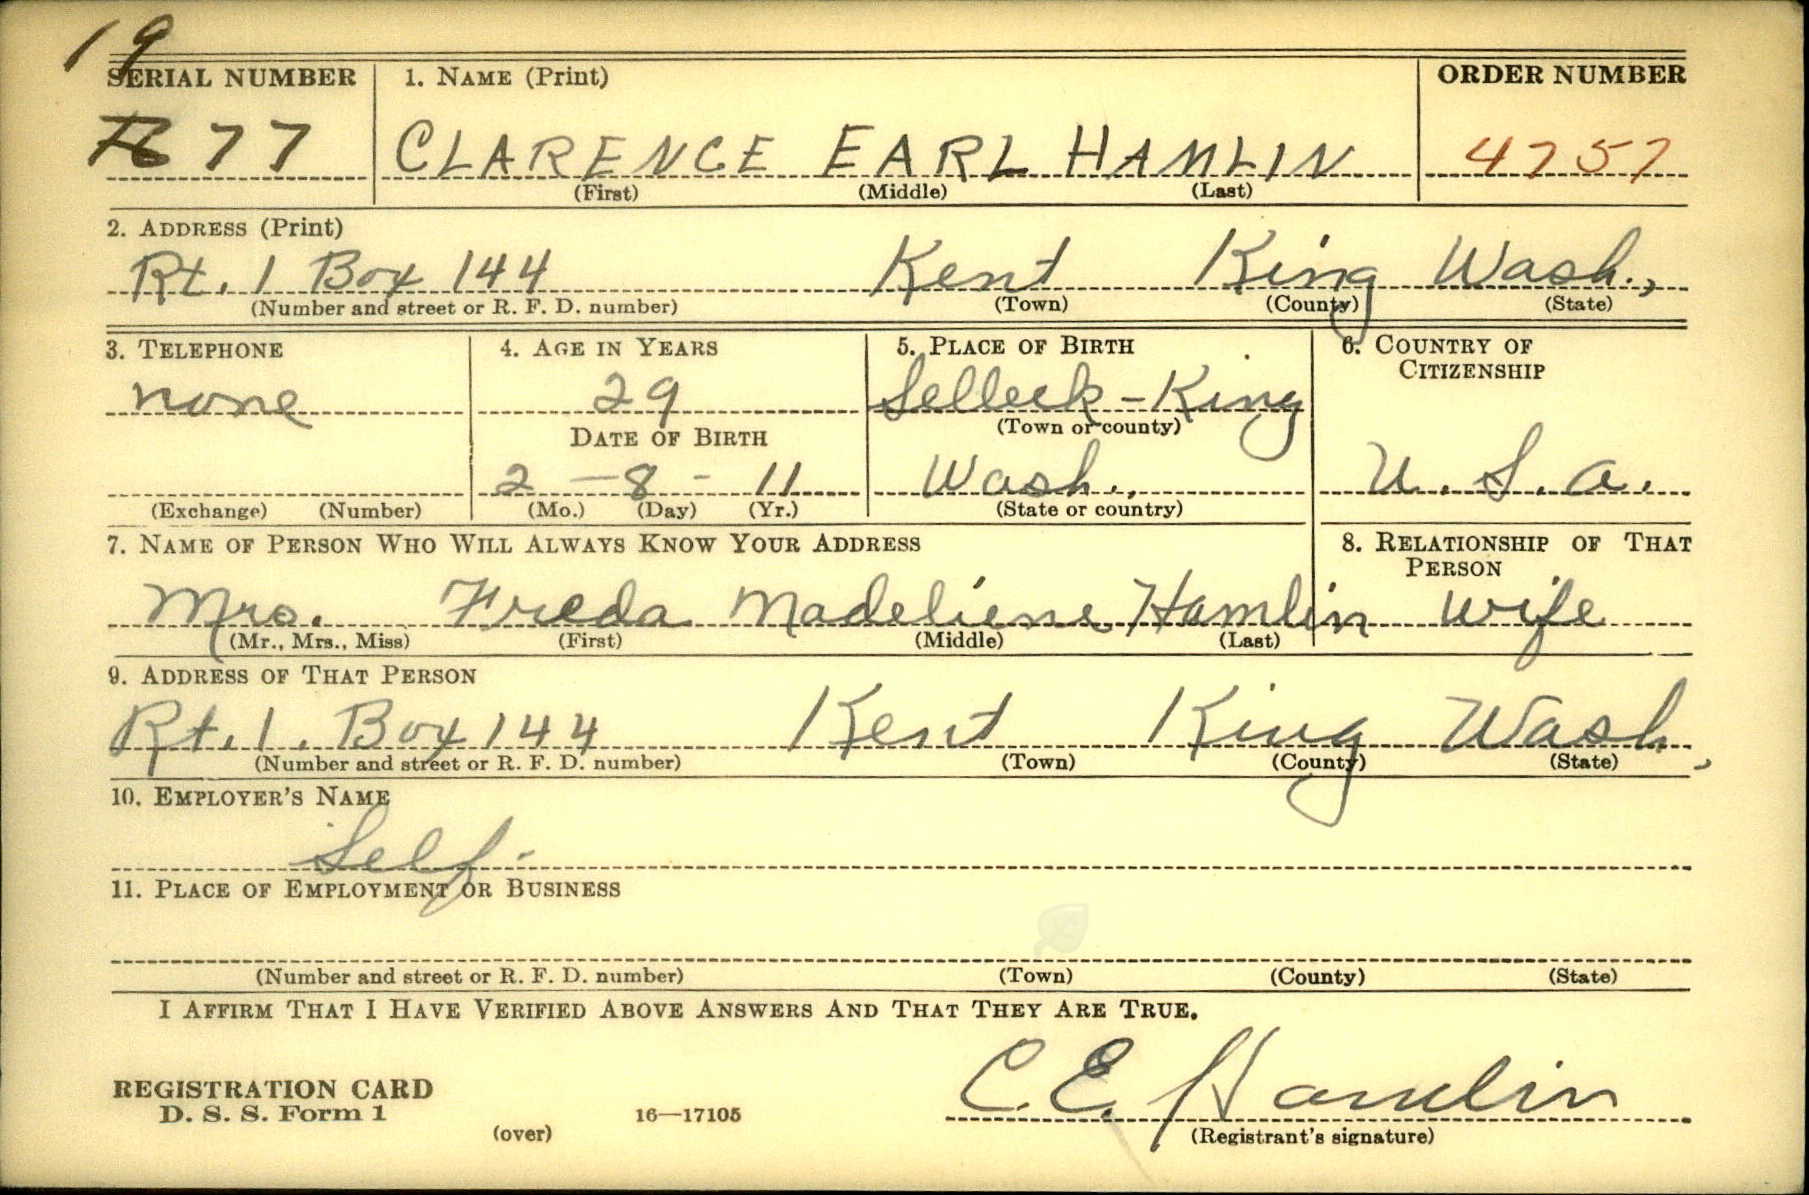 19
SERIAL NUMBER 1. NAME (Print) ORDER NUMBER
77 CLARENCE EARL HAMLIN 4757
(First) (Middle) (Last)
2. ADDRESS (Print)
Rt. 1 Box 144 Kent King Wash.,
(Number and street or R. F. D. number) (Town) (County) (State)
3. TELEPHONE 4. AGE IN YEARS 5. PLACE OF BIRTH 6. COUNTRY OF
CITIZENSHIP
none 29 Selleck - King
DATE OF BIRTH (Town or county)
2 - 8 - 11 Wash., U. S. A.
(Exchange) (Number) (Mo.) (Day) (Yr.) (State or country)
7. NAME OF PERSON WHO WILL ALWAYS KNOW YOUR ADDRESS 8. RELATIONSHIP OF THAT
PERSON
Mrs. Freda Madeliene Hamlin wife
(Mr., Mrs., Miss) (First) (Middle) (Last)
9. ADDRESS OF THAT PERSON
Rt. 1. Box 144 Kent King Wash,
(Number and street or R. F. D. number) (Town) (County) (State)
10. EMPLOYER'S NAME
Self -
11. PLACE OF EMPLOYMENT OR BUSINESS
(Number and street or R. F. D. number) (Town) (County) (State)
I AFFIRM THAT I HAVE VERIFIED ABOVE ANSWERS AND THAT THEY ARE TRUE.
C. E. Hamlin
REGISTRATION CARD
D. S. S. Form 1 16—17105
(over) (Registrant's signature)